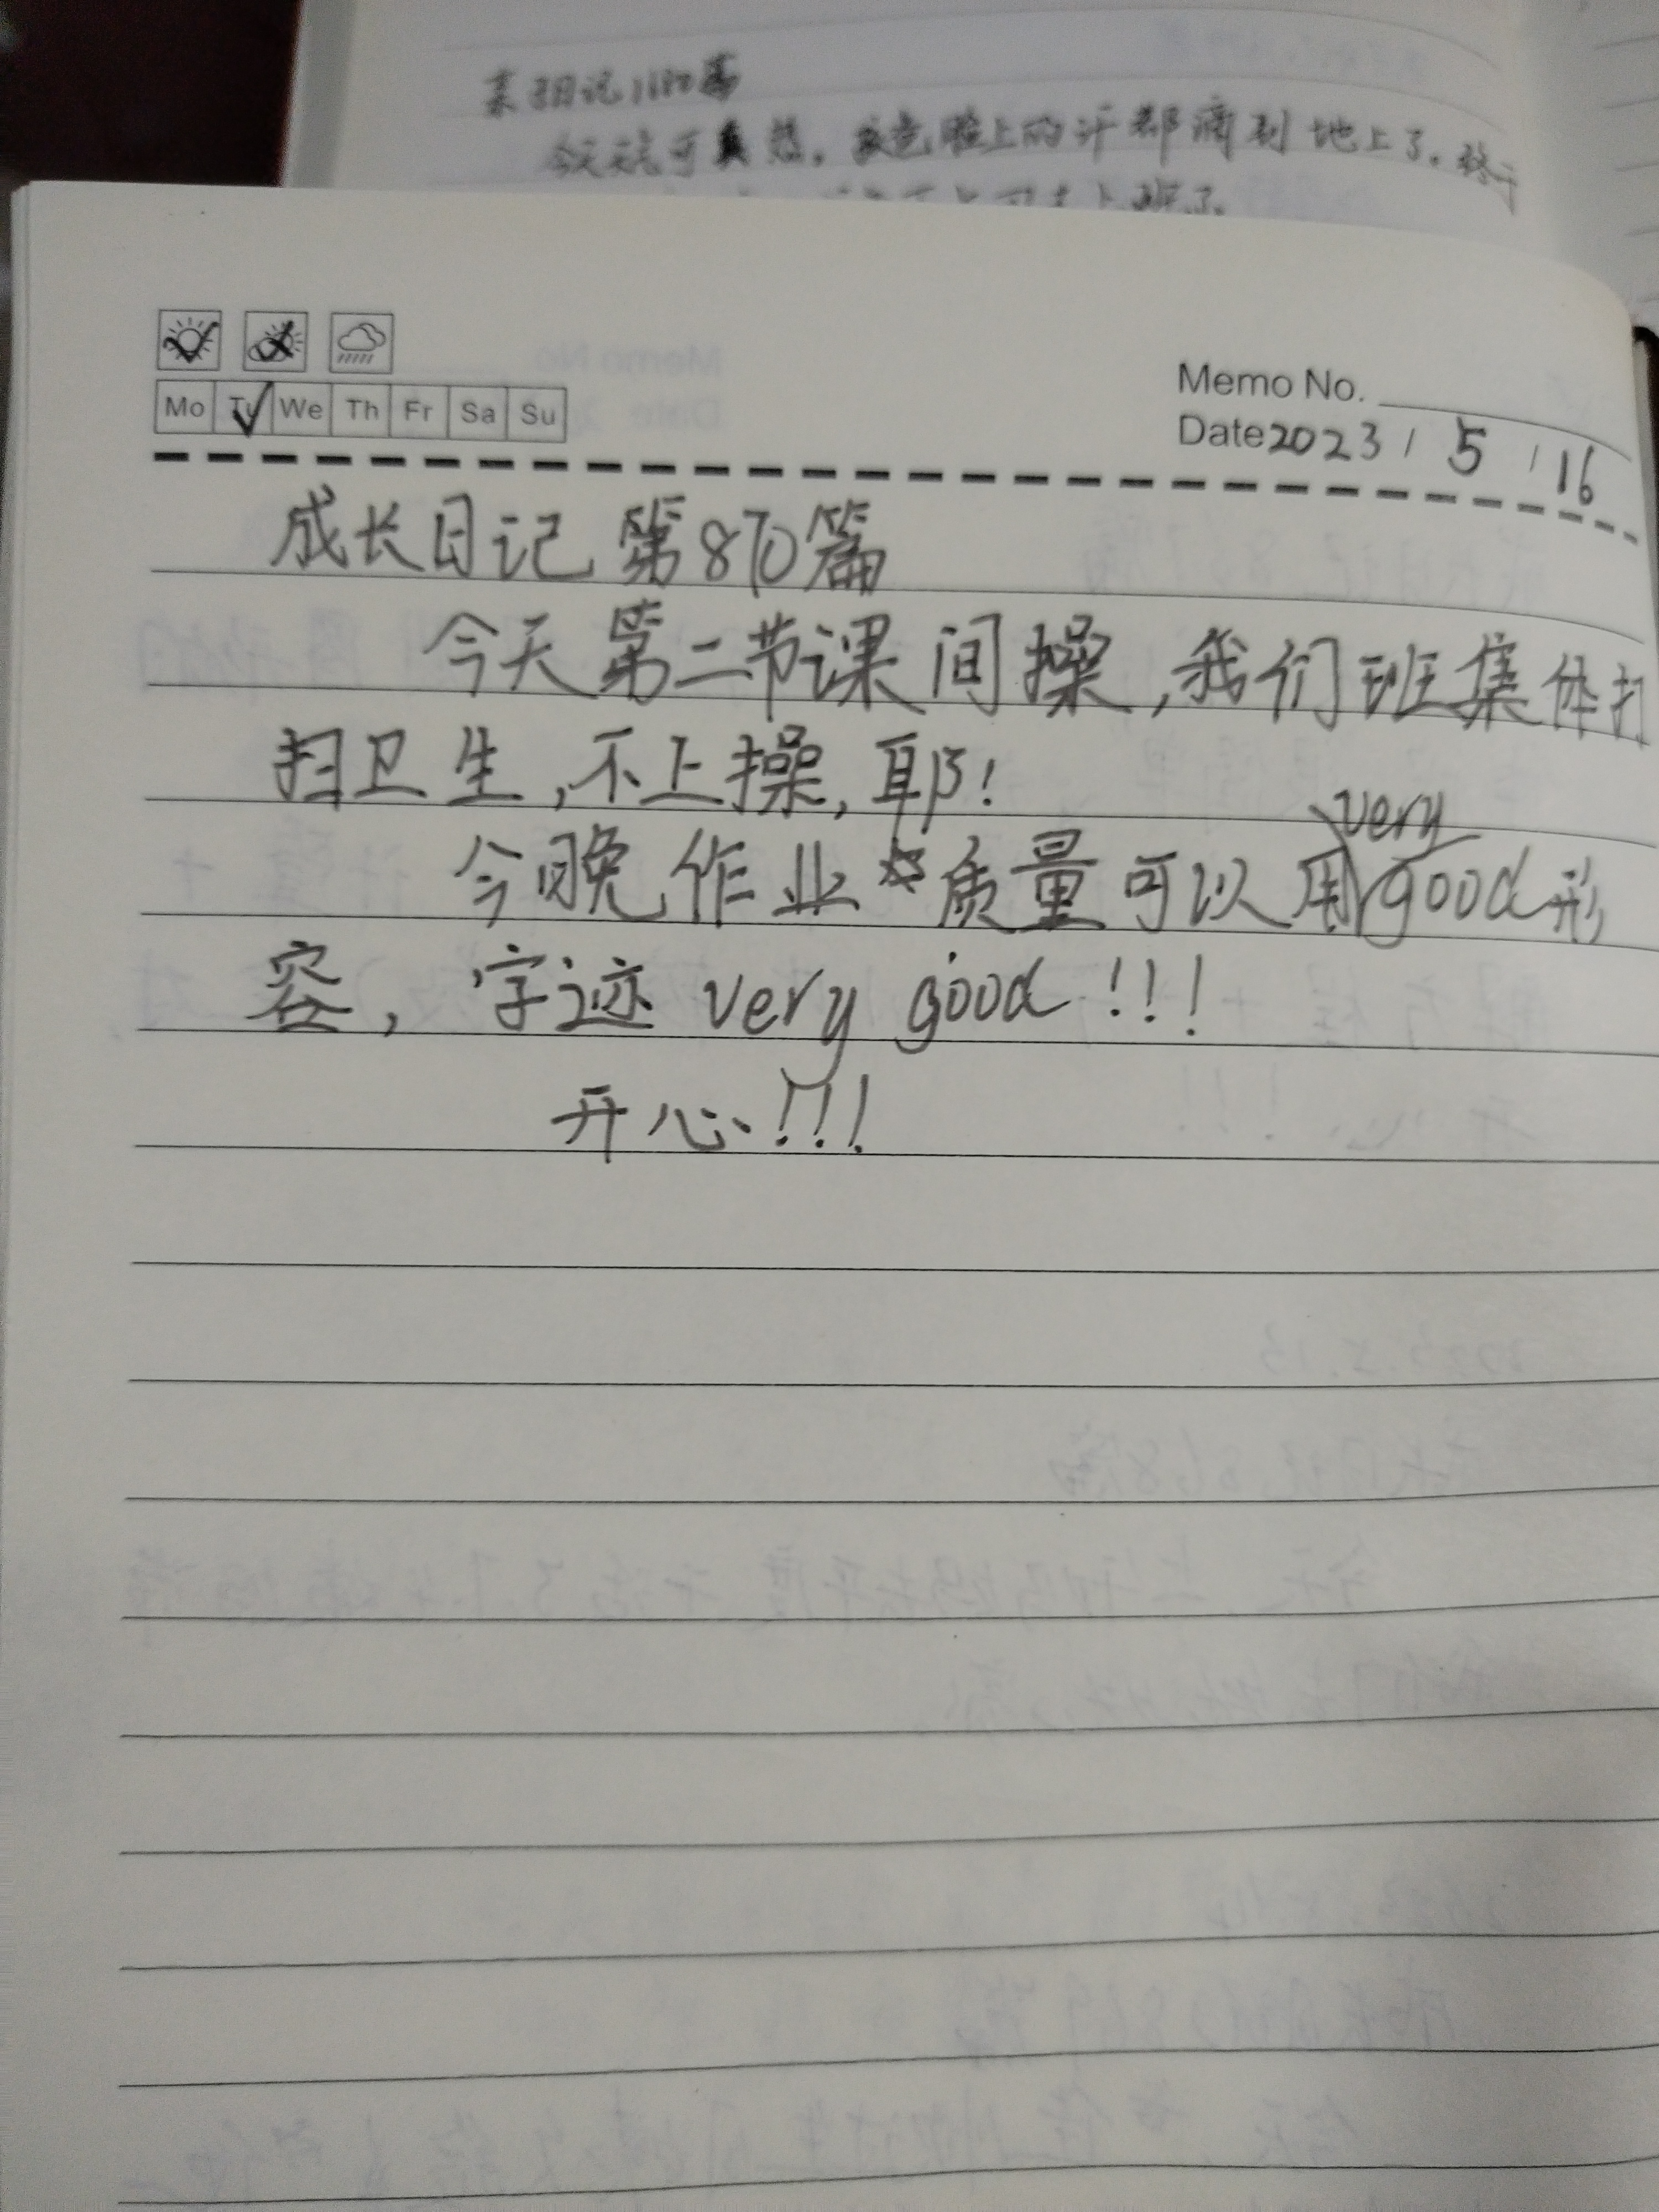 今天天气可真热，我老脸上的汗都滴到地上了。终于
Mo Tu We Th Fr Sa Su
Memo No.
Date 2023 / 5 / 16
成长日记 第870篇
今天第二节课间操，我们班集体打
扫卫生，不上操，耶！
今晚作业质量可以用very good形
容，字迹 very good！！！
开心！！！